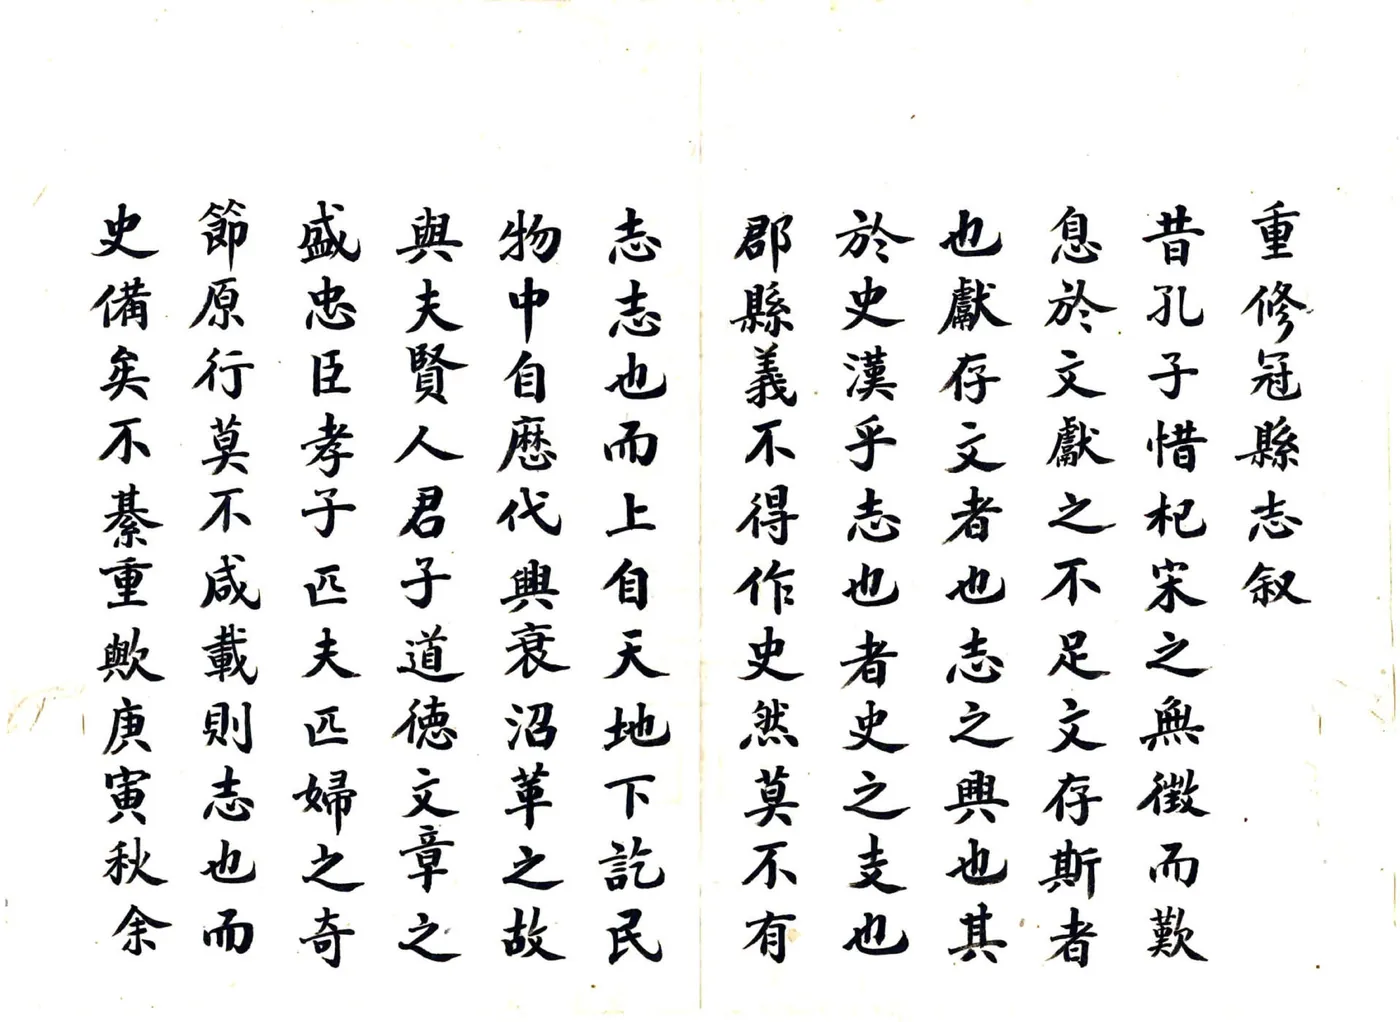 重修冠縣志叙
昔孔子惜杞宋之無徵而歎
息於文獻之不足文存斯者
也獻存文者也志之興也其
於史漢乎志也者史之支也
郡縣義不得作史然莫不有
志志也而上自天地下訖民
物中自歷代興衰沼革之故
與夫賢人君子道德文章之
盛忠臣孝子匹夫匹婦之奇
節原行莫不咸載則志也而
史備矣不綦重歟庚寅秋余